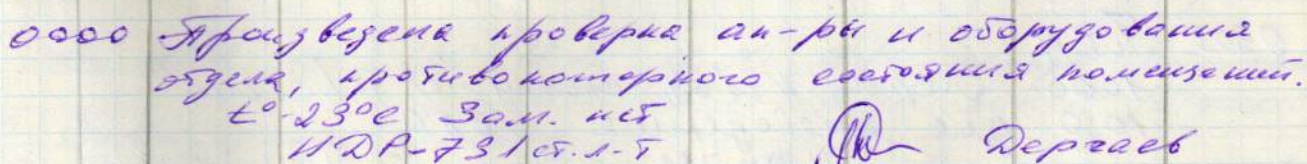 0000 Произведена проверка ап-ры и оборудования
отдела, противопожарного состояния помещений.
t° 23°С Зам. нет
НДР-731 ст. л-т Дергаев